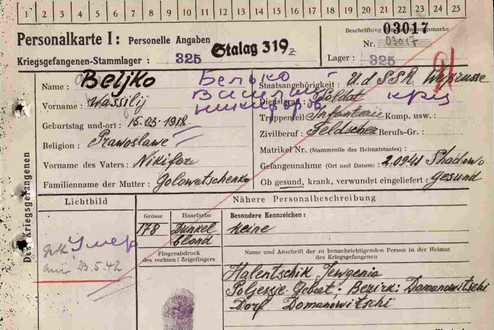 1 2 3 4 5 6 7 8 9 10 11 12 13 14 15 16 17 18 19 20 21 22 23 24 25
Personalkarte I: Personelle Angaben
Kriegsgefangenen-Stammlager: 325
Stalag 319
Beschriftung
Nr. 03017
03017
Lager: 325
Name: Beljko
Белько
Vorname: Wassilij
Василий
Geburtstag und -ort: 15.03.1918
Religion: Prawoslawe
Vorname des Vaters: Nikifor
Familienname der Mutter: Golowatschenko
Staatsangehörigkeit: U.d.SSR
Dienstgrad: Soldat
Truppenteil: Infanterie Komp. usw.:
Zivilberuf: Feldscher Berufs-Gr.:
Matrikel Nr. (Stammrolle des Heimatstaates):
Gefangennahme (Ort und Datum):
Ob gesund, krank, verwundet eingeliefert: gesund
Des Kriegsgefangenen
Lichtbild
Nähere Personalbeschreibung
Grösse
Haarfarbe
Besondere Kennzeichen:
178
Dunkel
blond
keine
Fingerabdruck
des rechten Zeigefingers
Name und Anschrift der zu benachrichtigenden Person in der Heimat
des Kriegsgefangenen
Умер
am 23.5.42
Halentschik Jewgenia
Polessje Gebiet. Bezirk: Domanowitschi
Dorf Domanowitschi